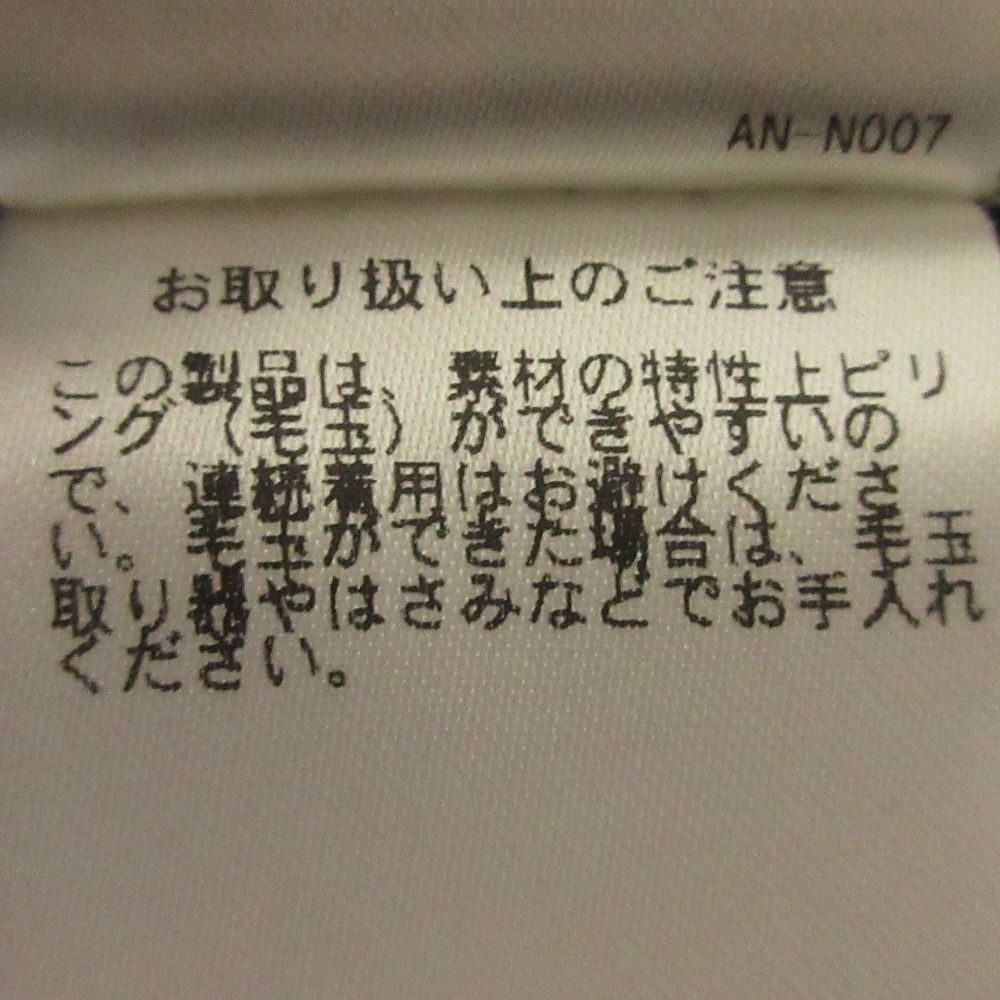 AN-N007
お取り扱い上のご注意
この製品は、素材の特性上ピリ
ング（毛玉）ができやすいの
で、連続着用はお避けくださ
い。毛玉ができた場合は、毛玉
取り器やはさみなどでお手入れ
ください。